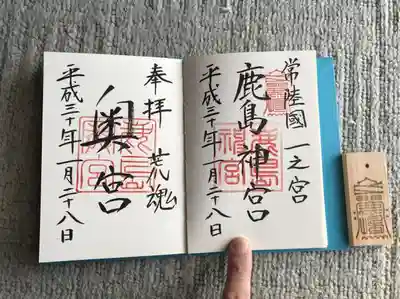 常陸國 一之宮
鹿島神宮
平成三十年一月二十八日
奉拝 荒魂
奥宮
平成三十年一月二十八日
鹿島神宮
鹿島神宮